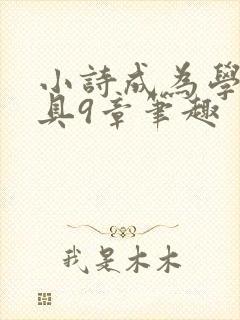 小詩成為學
具9章筆趣
我是木木